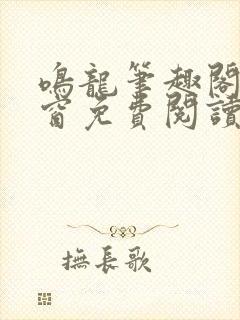 鳴龍筆趣閣
窗免費閱讀
撫長歌